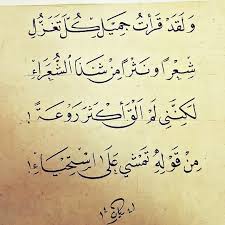 وَلَقَدْ قَرَأْتُ جَمِيْلَ كُلِّ تَغَزُّلٍ
شِعْرًا وَنَثْرًا مِنْ شَذَا الشُّعَرَاءِ
لٰكِنَّنِي لَمْ أَلْقَ أَكْثَرَ رَوْعَةً
مِنْ قَوْلِهِ تَمْشِي عَلَى اسْتِحْيَاءِ !